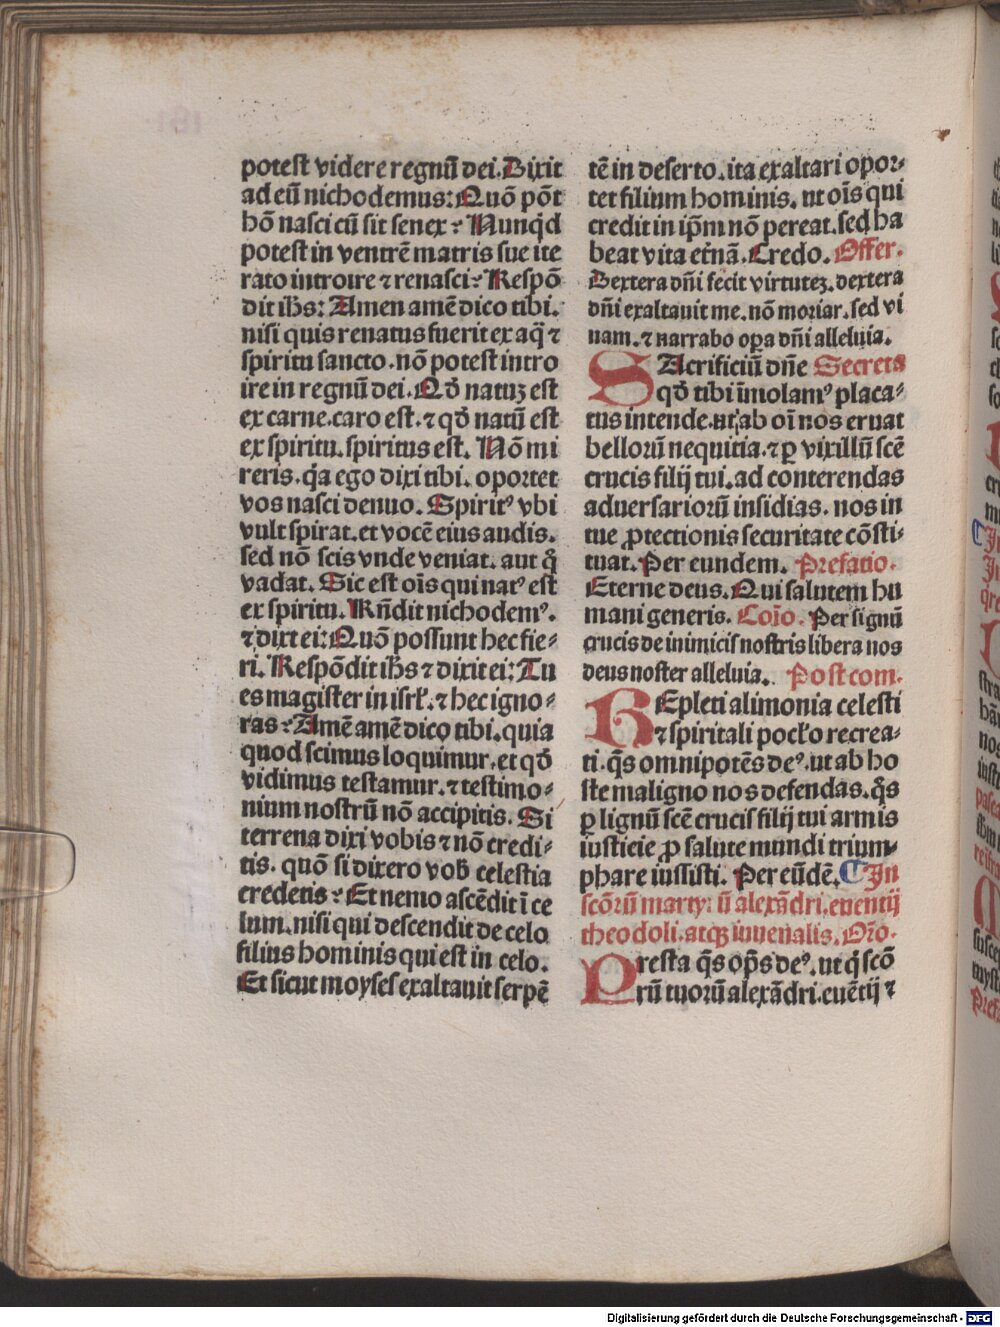 potest videre regnū dei. Dixit
ad eū nichodemus: Quō pōt
hō nasci cū sit senex? Nunqd
potest in ventrē matris sue ite
rato introire ⁊ renasci? Respō
dit ihs: Amen amē dico tibi.
nisi quis renatus fuerit ex aq̄ ⁊
spiritu sancto. nō potest intro
ire in regnū dei. Qd̄ natuꝫ est
ex carne. caro est. ⁊ qd̄ natū est
ex spiritu. spiritus est. Nō mi
reris. q̄a ego dixi tibi. oportet
vos nasci denuo. Spiritꝰ vbi
vult spirat. et vocē eius audis.
sed nō scis vnde veniat. aut q̊
vadat. Sic est oīs qui natꝰ est
ex spiritu. Rn̄dit nichodemꝰ.
⁊ dixt ei: Quō possunt hec fie⸗
ri. Respōdit ihs ⁊ dixit ei: Tu
es magister in isrł. ⁊ hec igno⸗
ras? Amē amē dico tibi. quia
quod scimus loquimur. et qd̄
vidimus testamur. ⁊ testimo⸗
nium nostrū nō accipitis. Si
terrena dixi vobis ⁊ nō credi⸗
tis. quō si dixero vob̄ celestia
credetis? Et nemo ascēdit ī ce
lum. nisi qui descendit de celo
filius hominis qui est in celo.
Et sicut moyses exaltauit serpē
tē in deserto. ita exaltari opor⸗
tet filium hominis. ut oīs qui
credit in ip̄m nō pereat. sed ha
beat vita et̄nā. Credo. Offer.
Dextera dn̄i fecit virtuteꝫ. dextera
dn̄i exaltauit me. nō moriar. sed vi
uam. ⁊ narrabo oꝑa dn̄i alleluia.
SAcrificiū dn̄e Secreta
qd̄ tibi īmolamꝰ placa⸗
tus intende. ut ab oī nos eruat
bellorū nequitia. ⁊ ꝑ vixillū scē
crucis filij tui. ad conterendas
aduersariorū insidias. nos in
tue ꝓtectionis securitate cōsti⸗
tuat. Per eundem. Prefatio.
Eterne deus. Qui salutem hu
mani generis. Coīo. Per signū
crucis de inimicis nostris libera nos
deus noster alleluia. Postcom.
REpleti alimonia celesti
⁊ spiritali pocl̄o recrea⸗
ti. q̄s omnipotēs deꝰ. ut ab ho
ste maligno nos defendas. q̄s
ꝑ lignū scē crucis filij tui armis
iusticie ꝓ salute mundi trium⸗
phare iussisti. Per eūdē. ¶ In
scōrū martyꝝ ū alexādri. euentij
theodoli. atqꝫ iuuenalis. Orō.
Presta q̄s op̄s deꝰ. ut q̄ scō
rū tuorū alexādri. euētij ⁊
Digitalisierung gefördert durch die Deutsche Forschungsgemeinschaft - DFG